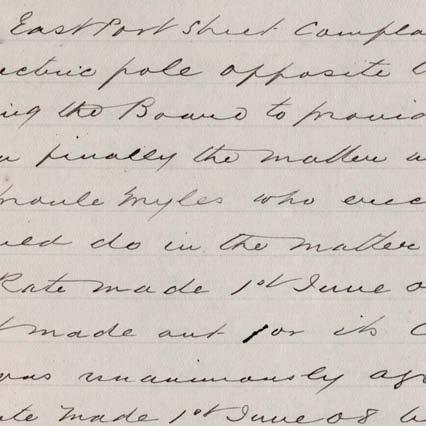 East Port Street Compla
ectric pole opposite
ing the Board to provid
finally the matter
Myles who erec
do in the matter
Rate made 1st June
made out for its
was unanimously ag
made 1st June 08